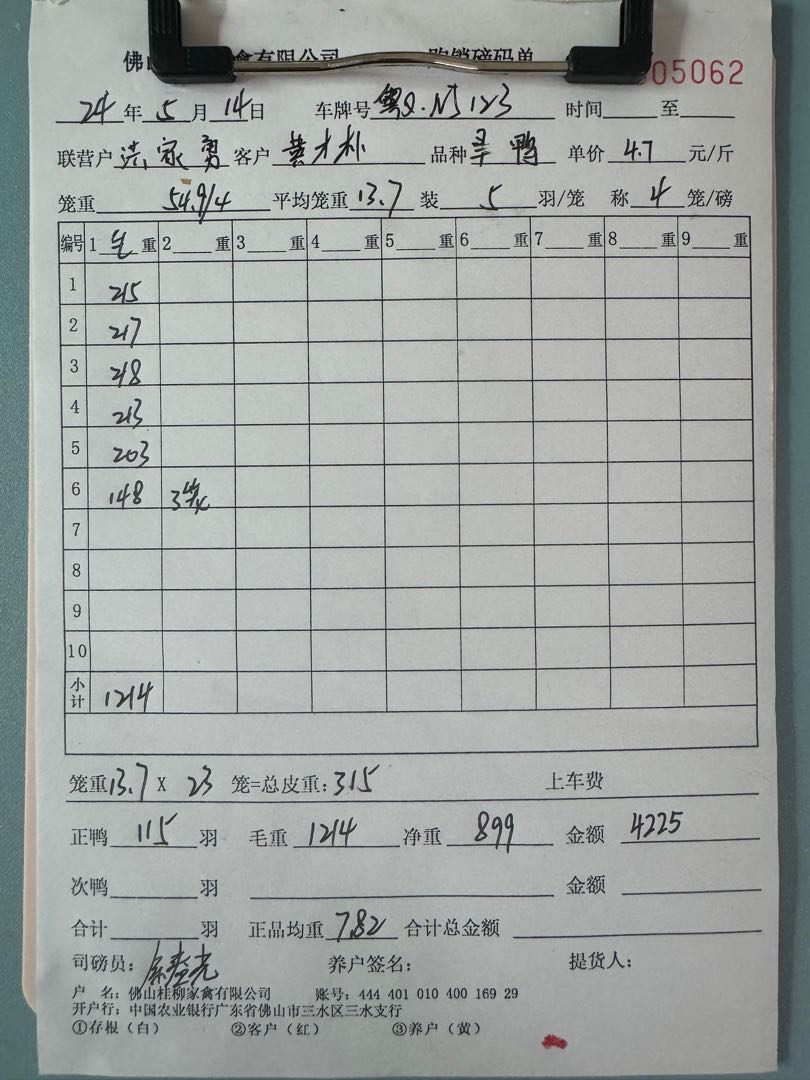 佛山 禽有限公司 购销磅码单 05062
24年5月14日 车牌号 粤Q·N5123 时间 至
联营户 洪家勇 客户 黄才朴 品种 旱鸭 单价 4.7 元/斤
笼重 54.9/4 平均笼重 13.7 装 5 羽/笼 称 4 笼/磅
编号 1 毛 重 2 重 3 重 4 重 5 重 6 重 7 重 8 重 9 重
1 215
2 217
3 218
4 213
5 203
6 148 3笼
7
8
9
10
小计 1214
笼重 13.7 X 23 笼=总皮重: 315 上车费
正鸭 115 羽 毛重 1214 净重 899 金额 4225
次鸭 羽 金额
合计 羽 正品均重 7.82 合计总金额
司磅员: 养户签名: 提货人:
户 名: 佛山桂柳家禽有限公司 账号: 444 401 010 400 169 29
开户行: 中国农业银行广东省佛山市三水区三水支行
①存根(白) ②客户(红) ③养户(黄)